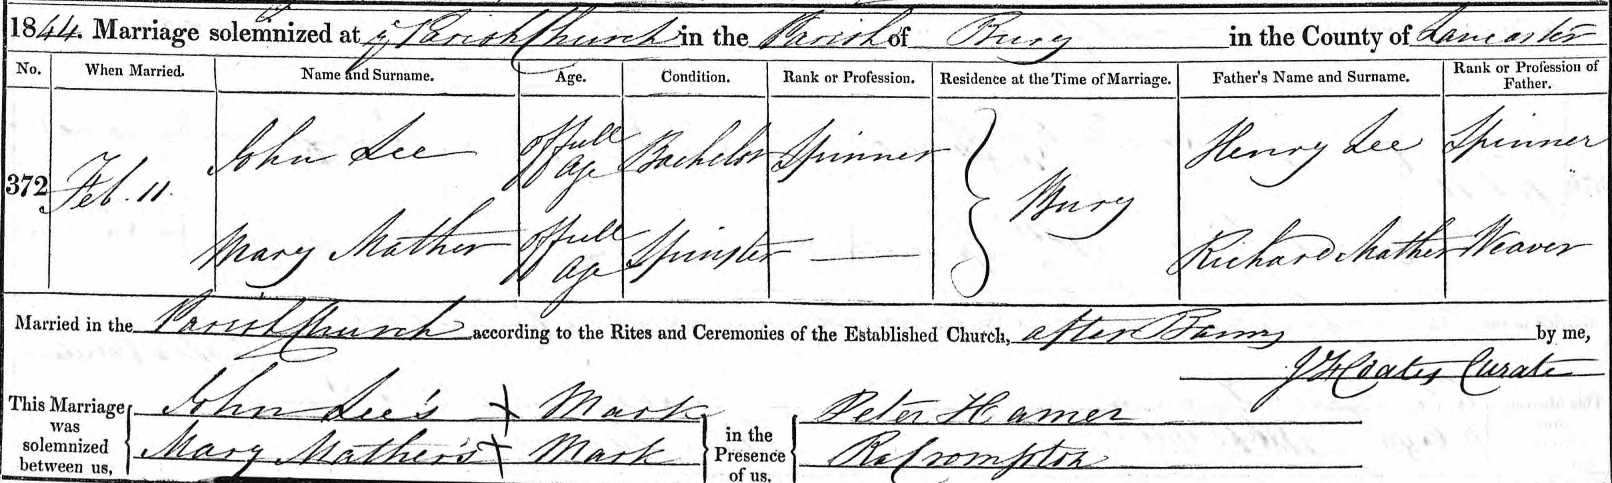 1844. Marriage solemnized at ye Parish Church in the Parish of Bury in the County of Lancaster
No. When Married. Name and Surname. Age. Condition. Rank or Profession. Residence at the Time of Marriage. Father's Name and Surname. Rank or Profession of Father.
372 Feb. 11. John Lee of full age Bachelor Spinner Bury Henry Lee Spinner
Mary Mather of full age Spinster — Richard Mather Weaver
Married in the Parish Church according to the Rites and Ceremonies of the Established Church, after Banns by me,
J H Coates Curate
This Marriage was solemnized between us, John Lee's X Mark in the Presence of us. Peter Hamer
Mary Mather's X Mark Ra Crompton